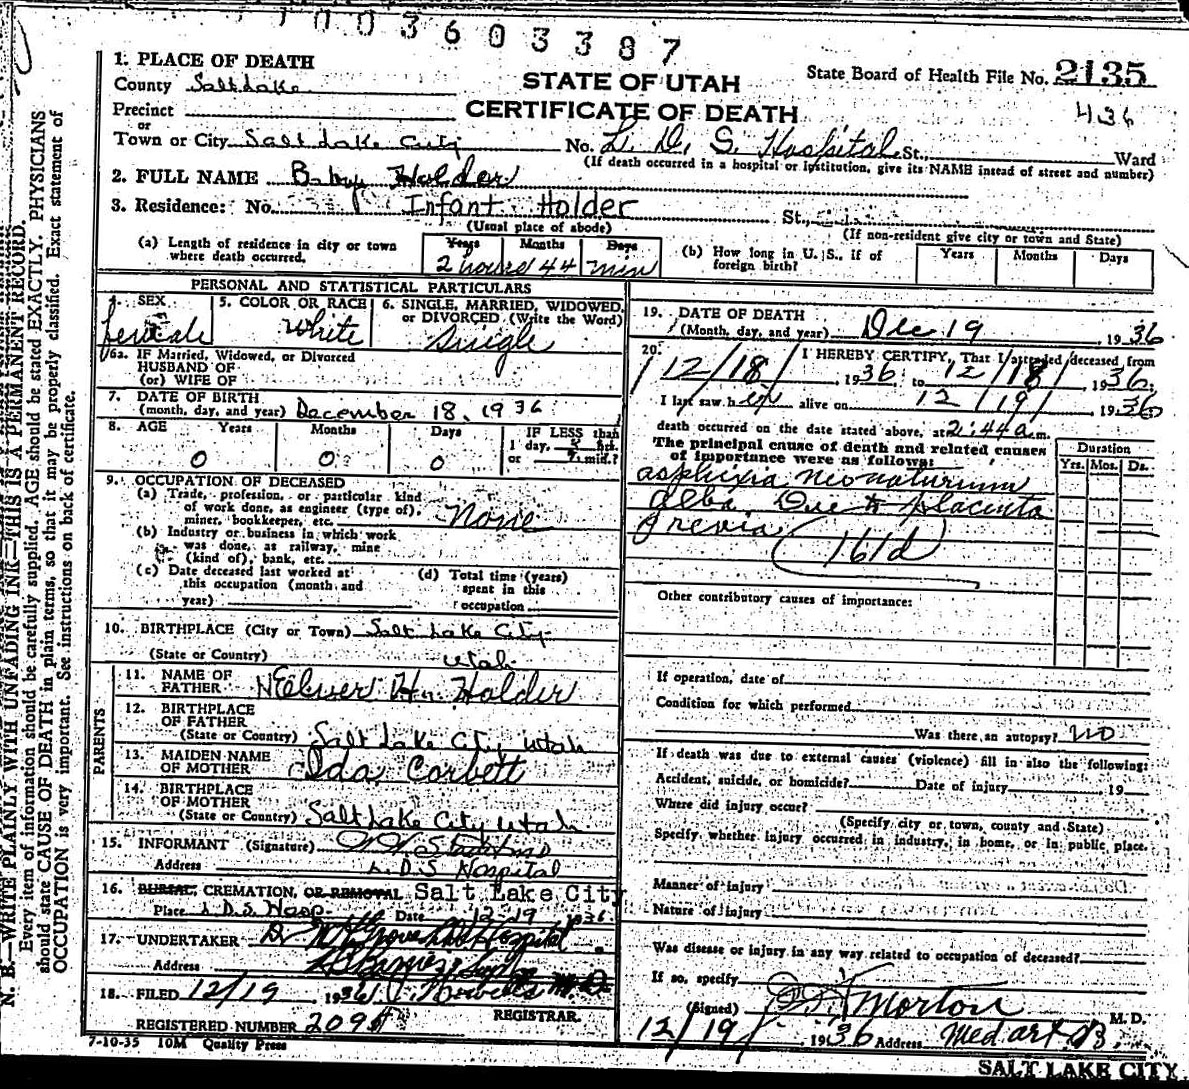 1003603387
1. PLACE OF DEATH
County Salt Lake
STATE OF UTAH
CERTIFICATE OF DEATH
State Board of Health File No. 2135
436
Precinct
or
Town or City Salt Lake City No. L. D. S. Hospital St., Ward
(If death occurred in a hospital or institution, give its NAME instead of street and number)
2. FULL NAME Baby Holder
3. Residence: No. Infant Holder St.,
(Usual place of abode)
(If non-resident give city or town and State)
(a) Length of residence in city or town where death occurred.
Years Months Days
2 hours 44 min
(b) How long in U. S., if of foreign birth?
Years Months Days
PERSONAL AND STATISTICAL PARTICULARS
4. SEX
female
5. COLOR OR RACE
White
6. SINGLE, MARRIED, WIDOWED, or DIVORCED (Write the Word)
Single
6a. IF Married, Widowed, or Divorced
HUSBAND OF
(or) WIFE OF
7. DATE OF BIRTH
(month, day, and year) December 18, 1936
8. AGE Years Months Days
0 0 0
IF LESS than
1 day, hrs.
or min.?
9. OCCUPATION OF DECEASED
(a) Trade, profession, or particular kind
of work done, as engineer (type of),
miner, bookkeeper, etc. None
(b) Industry or business in which work
was done, as railway, mine
(kind of), bank, etc.
(c) Date deceased last worked at
this occupation (month and
year)
(d) Total time (years)
spent in this
occupation
10. BIRTHPLACE (City or Town) Salt Lake City
(State or Country) Utah
PARENTS
11. NAME OF
FATHER Elmer H. Holder
12. BIRTHPLACE
OF FATHER
(State or Country) Salt Lake City Utah
13. MAIDEN NAME
OF MOTHER Ida Corbett
14. BIRTHPLACE
OF MOTHER
(State or Country) Salt Lake City Utah
15. INFORMANT (Signature)
Address L. D. S Hospital
16. BURIAL, CREMATION, OR REMOVAL Salt Lake City
Place L. D. S. Hosp. Date 12-19 1936
17. UNDERTAKER Hospital
Address
18. FILED 12/19 1936
REGISTRAR.
REGISTERED NUMBER 2095
7-10-35 10M Quality Press
19. DATE OF DEATH
(Month, day, and year) Dec 19 1936
20. I HEREBY CERTIFY, That I attended deceased from
12/18 1936 to 12/18 1936.
I last saw her alive on 12/19/ 1936
death occurred on the date stated above, at 2:44 a.m.
The principal cause of death and related causes
of importance were as follows:
Duration
Yrs. Mos. Ds.
asphixia neonaturum
alba Due to placenta
previa (161d)
Other contributory causes of importance:
If operation, date of
Condition for which performed
Was there an autopsy? no
If death was due to external causes (violence) fill in also the following:
Accident, suicide, or homicide? Date of injury 19
Where did injury occur?
(Specify city or town, county and State)
Specify whether injury occurred in industry, in home, or in public place.
Manner of injury
Nature of injury
Was disease or injury in any way related to occupation of deceased?
If so, specify
(Signed) Morton M. D.
12/19/ 1936 Address Med art B
SALT LAKE CITY
N. B.—WRITE PLAINLY WITH UNFADING INK—THIS IS A PERMANENT RECORD.
Every item of information should be carefully supplied. AGE should be stated EXACTLY. PHYSICIANS
should state CAUSE OF DEATH in plain terms, so that it may be properly classified. Exact statement of
OCCUPATION is very important. See instructions on back of certificate.